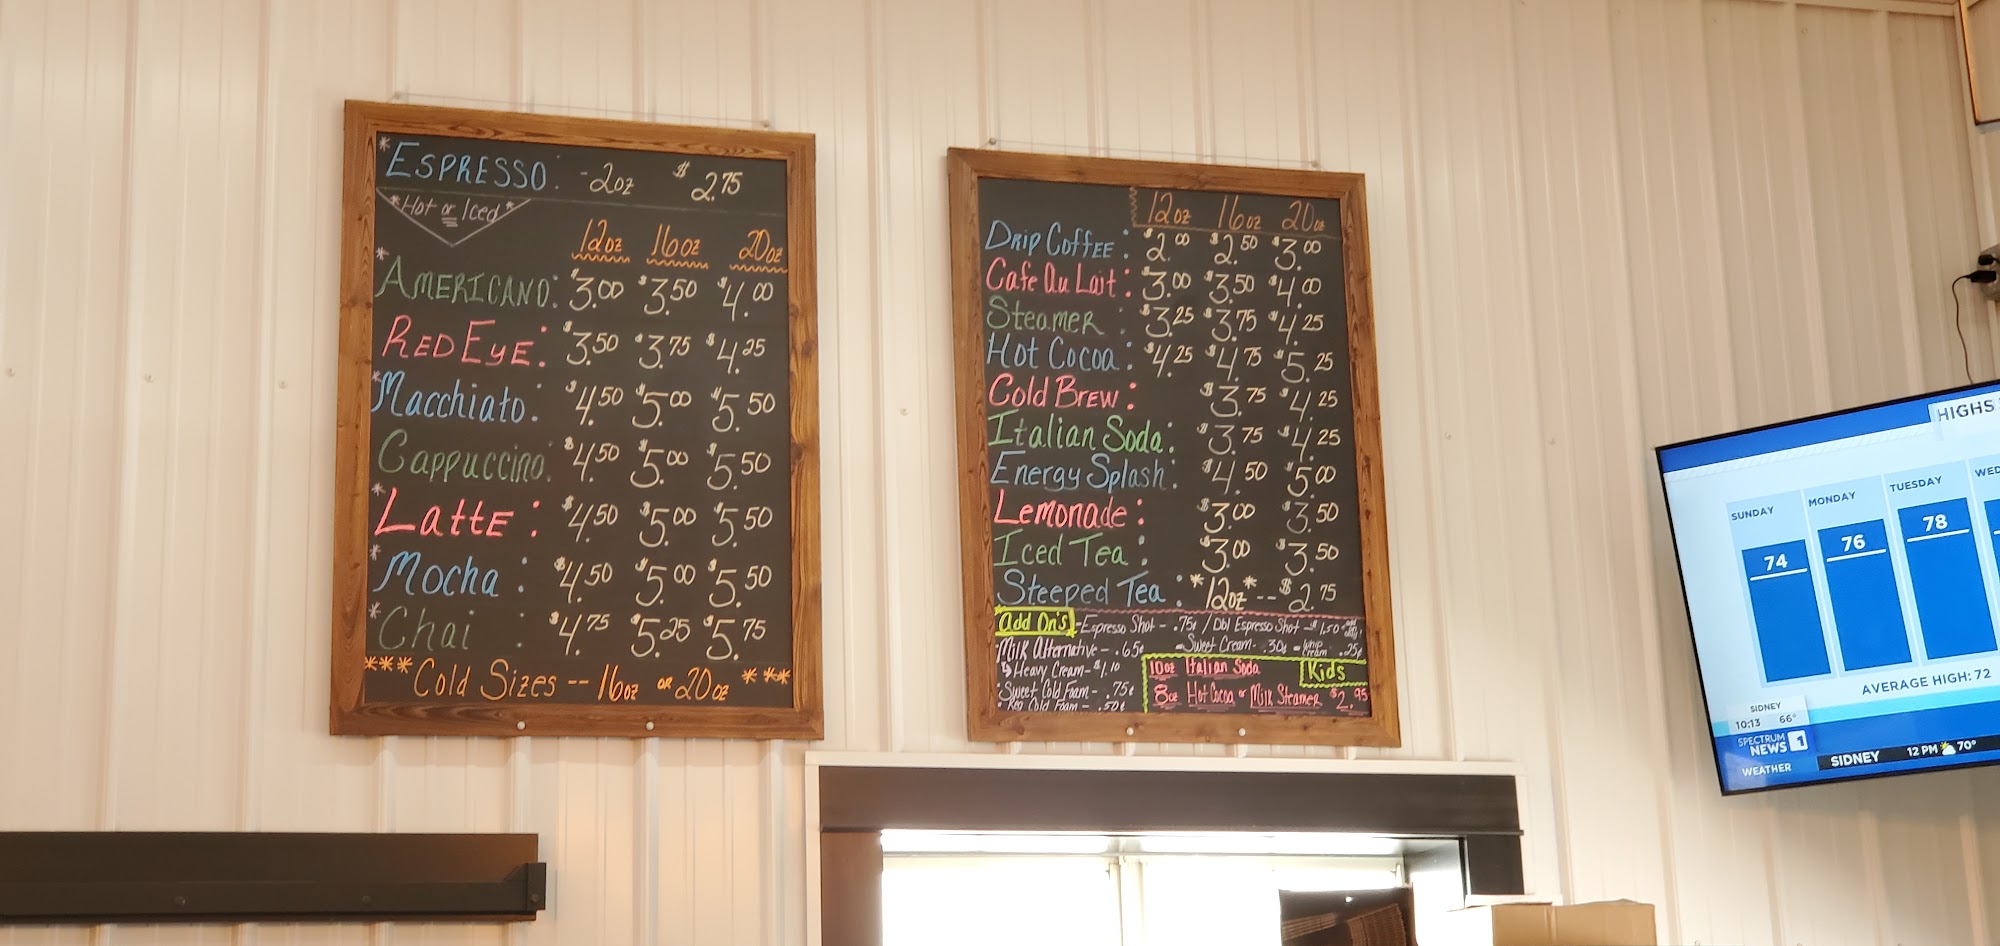 *ESPRESSO: -2oz $2.75
*Hot or Iced*
12oz 16oz 20oz
*AMERICANO: $3.00 $3.50 $4.00
RED EYE: $3.50 $3.75 $4.25
*Macchiato: $4.50 $5.00 $5.50
Cappuccino: $4.50 $5.00 $5.50
*Latte: $4.50 $5.00 $5.50
*Mocha: $4.50 $5.00 $5.50
*Chai: $4.75 $5.25 $5.75
***Cold Sizes -- 16oz or 20oz ***
12oz 16oz 20oz
Drip Coffee: $2.00 $2.50 $3.00
Cafe Au Lait: $3.00 $3.50 $4.00
Steamer: $3.25 $3.75 $4.25
Hot Cocoa: $4.25 $4.75 $5.25
Cold Brew: $3.75 $4.25
Italian Soda: $3.75 $4.25
Energy Splash: $4.50 $5.00
Lemonade: $3.00 $3.50
Iced Tea: $3.00 $3.50
Steeped Tea: *12oz*--$2.75
Add On's -Espresso Shot - .75¢ / Dbl Espresso Shot -$1.50
Milk Alternative - .65¢ -Sweet Cream - .30¢ - Whip Cream .25¢
Heavy Cream - $1.10
Sweet Cold Foam - .75¢
* Reg Cold Foam - .50¢
10oz Italian Soda Kids
8oz Hot Cocoa or Milk Steamer $2.95
HIGHS
SUNDAY MONDAY TUESDAY WED
74 76 78
AVERAGE HIGH: 72
SIDNEY
10:13 66°
SPECTRUM NEWS 1
WEATHER SIDNEY 12 PM 70°